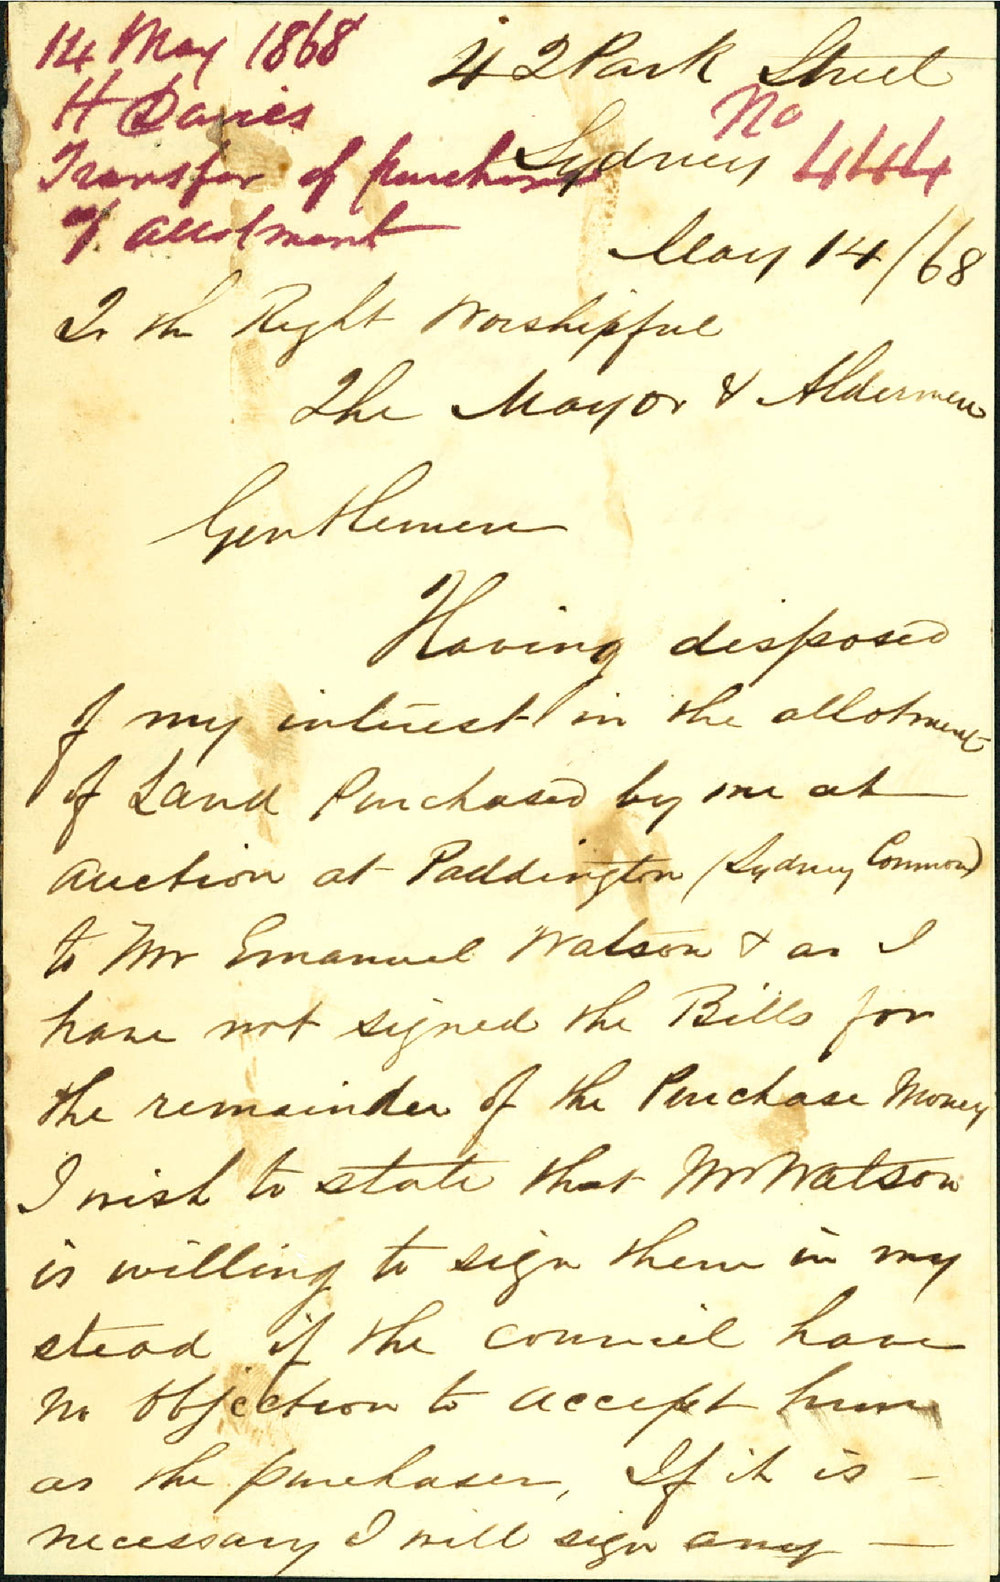 14 May 1868
H Davies
Transfer of purchase
of allotment
No
444
42 Park Street
Sydney
May 14/68
To the Right Worshipful
The Mayor & Aldermen
Gentlemen
Having disposed
of my interest in the allotment
of Land Purchased by me at
Auction at Paddington (Sydney Common)
to Mr Emanuel Watson & as I
have not signed the Bills for
the remainder of the Purchase Money
I wish to state that Mr Watson
is willing to sign them in my
stead if the council have
no objection to accept him
as the purchaser, If it is -
necessary I will sign any -